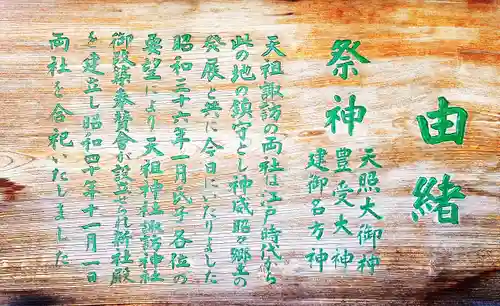 由緒
祭神
天照大御神
豊受大神
建御名方神
天祖諏訪の両社は江戸時代から
此の地の鎮守とし神威昭々郷土の
発展と共に今日にいたりました
昭和三十六年一月氏子各位の
要望により天祖神社諏訪神社
御改築奉賛会が設立せられ新社殿
を建立し昭和四十年十一月一日
両社を合祀いたしました